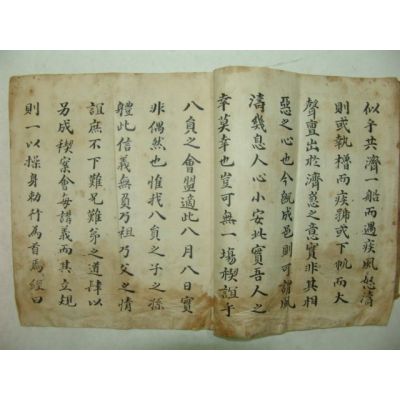 似乎共濟一船而遇疾風怒濤
則或執櫓而疾號或下帆而大
聲亶出於濟急之意實非其相
惡之心也今旣成邑則可謂風
濤幾息人心小安此實吾人之
幸莫幸也豈可無一場稧誼乎
八負之會盟適此八月八日實
非偶然也惟我八負之子之孫
軆此信義無負乃祖乃父之情
誼庶不下難兄難弟之道肆以
另成稧案會每講義而其立規
則一以操身勅行為首焉經曰